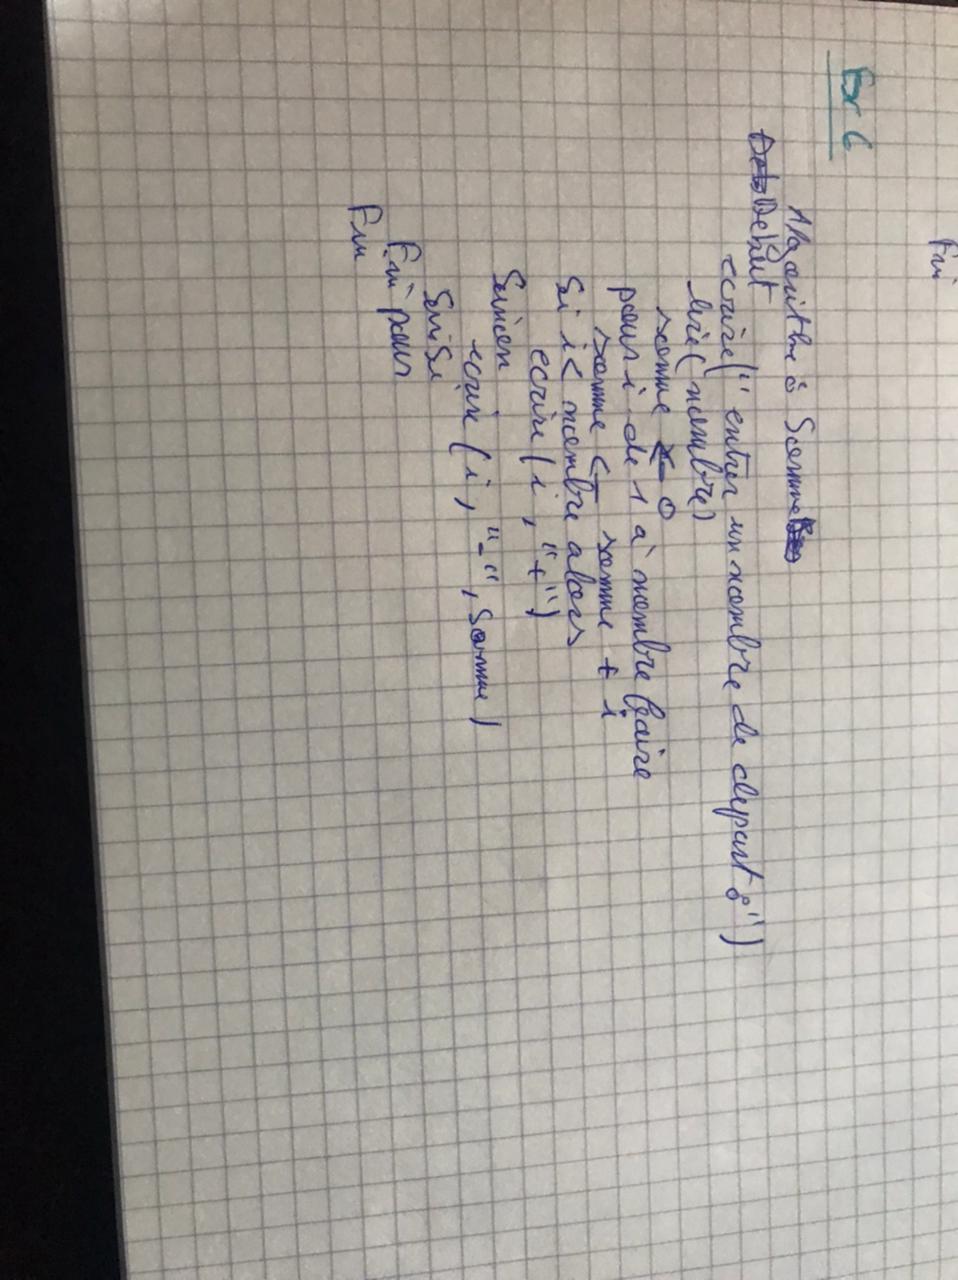 Fin
Ex 6
Algorithme : Somme
Debut
ecrire(" entrer un nombre de depart : ")
lire( nombre)
somme ← 0
pour i de 1 a' nombre faire
somme ← somme + i
Si i < nombre alors
ecrire( i , "+")
Sinon
ecrire ( i , "=", Somme )
Fin pour
Fin